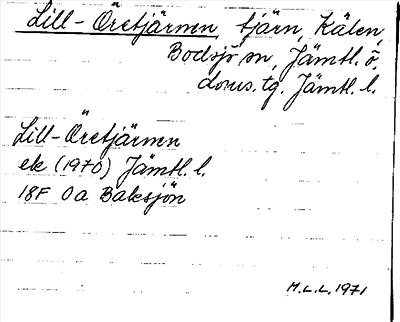 Lill-Öretjärnen, tjärn, Kälen,
Bodsjö sn, Jämtl. ö.
doms. tg. Jämtl. l.
Lill-Öretjärnen
ek (1970) Jämtl. l.
18F 0a Baksjön
M.L.L. 1971